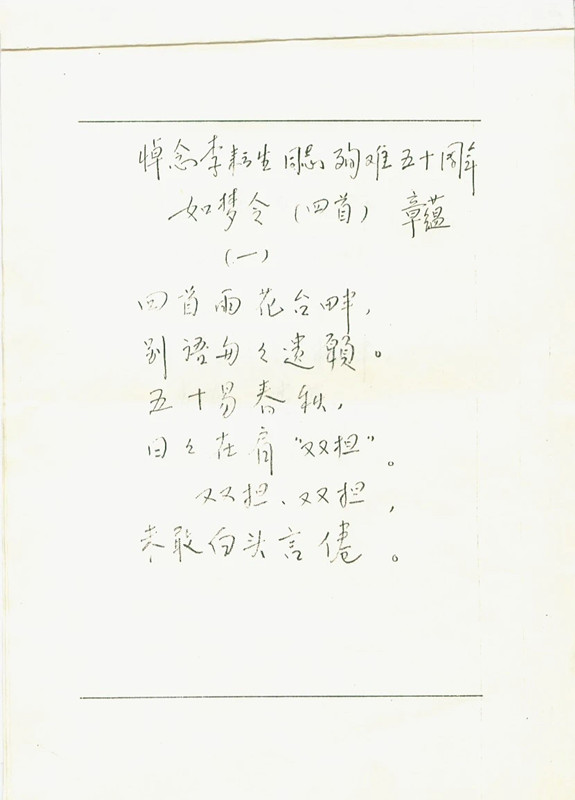 悼念李耘生同志殉难五十周年
如梦令（四首） 章蕴
（一）
回首雨花台畔，
别语句々遗愿。
五十易春秋，
日々在肩“双担”。
双担、双担，
未敢白头言倦。